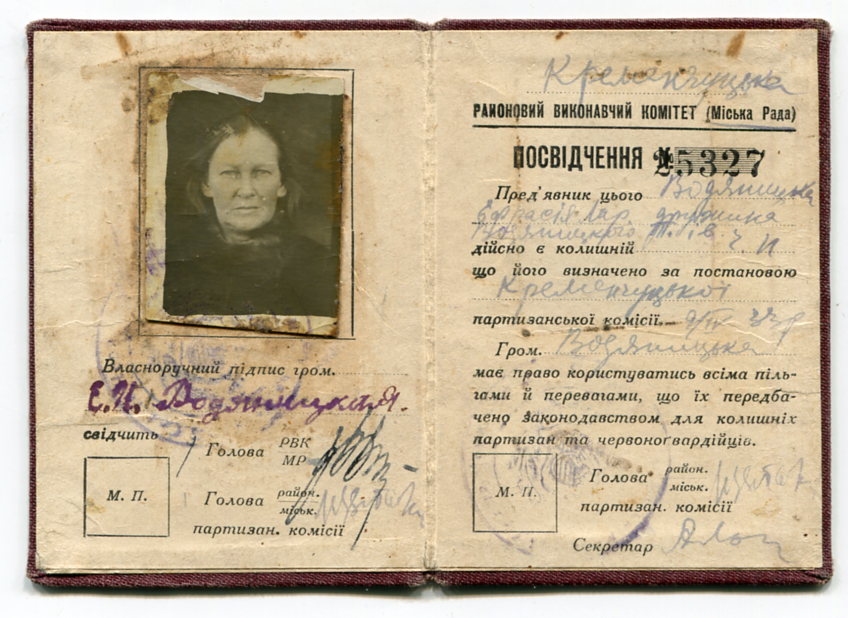 Власноручний підпис гром.
Е.И. Водяницкая.
свідчить
Голова РВК
МР
М. П.
Голова район.
міськ.
партизан. комісії
Кременчуцька
РАЙОНОВИЙ ВИКОНАВЧИЙ КОМІТЕТ (Міська Рада)
ПОСВІДЧЕННЯ № 25327
Пред'явник цього Водяницька
дружина
Водяницького
дійсно є колишній Ч. П
що його визначено за постановою
Кременчуцької
партизанської комісії
Гром. Водяницька
має право користуватись всіма піль-
гами й перевагами, що їх передба-
чено законодавством для колишніх
партизан та червоногвардійців.
М. П.
Голова район.
міськ.
партизан. комісії
Секретар